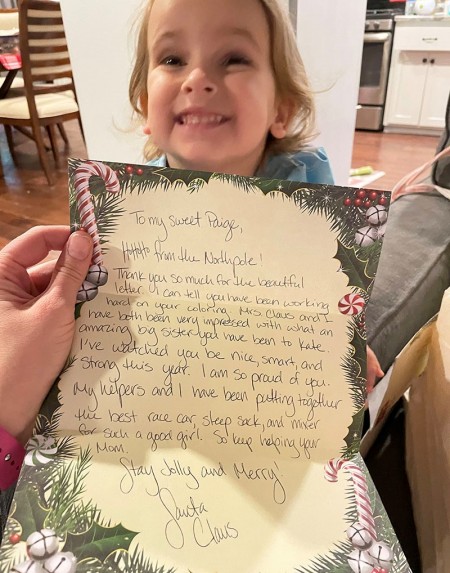 To my sweet Paige,
HoHoHo from the Northpole!
Thank you so much for the beautiful
letter. I can tell you have been working
hard on your coloring. Mrs Claus and I
have both been very impressed with what an
amazing big sister you have been to Kate.
I've watched you be nice, smart, and
strong this year. I am so proud of you.
My helpers and I have been putting together
the best race car, sleep sack, and mixer
for such a good girl. So keep helping your
Mom.
Stay Jolly and Merry!
Santa
Claus